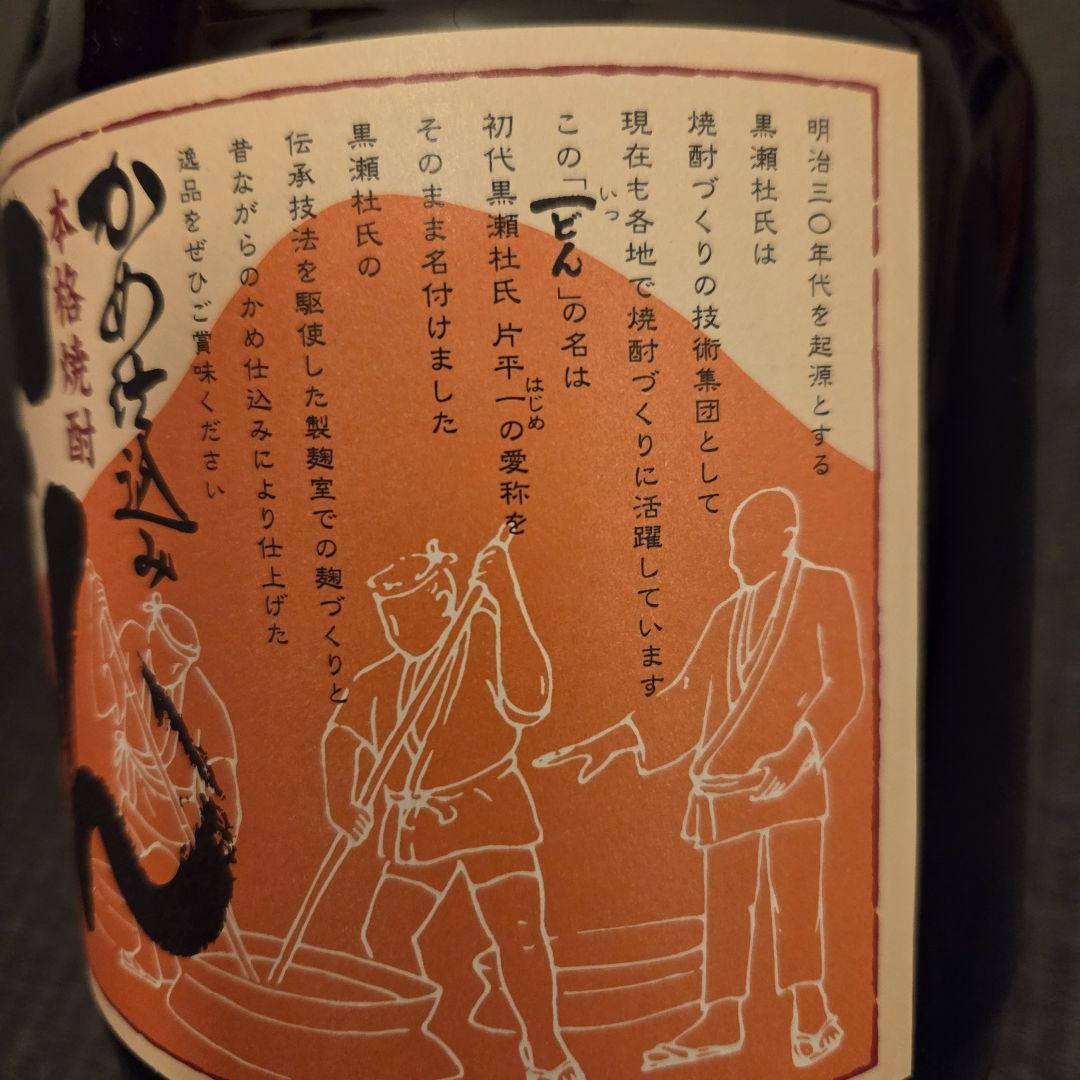 明治三〇年代を起源とする
黒瀬杜氏は
焼酎づくりの技術集団として
現在も各地で焼酎づくりに活躍しています
いっ
この「一どん」の名は
はじめ
初代黒瀬杜氏 片平一の愛称を
そのまま名付けました
黒瀬杜氏の
伝承技法を駆使した製麹室での麹づくりと
昔ながらのかめ仕込みにより仕上げた
逸品をぜひご賞味ください
かめ仕込み
本格焼酎
ん